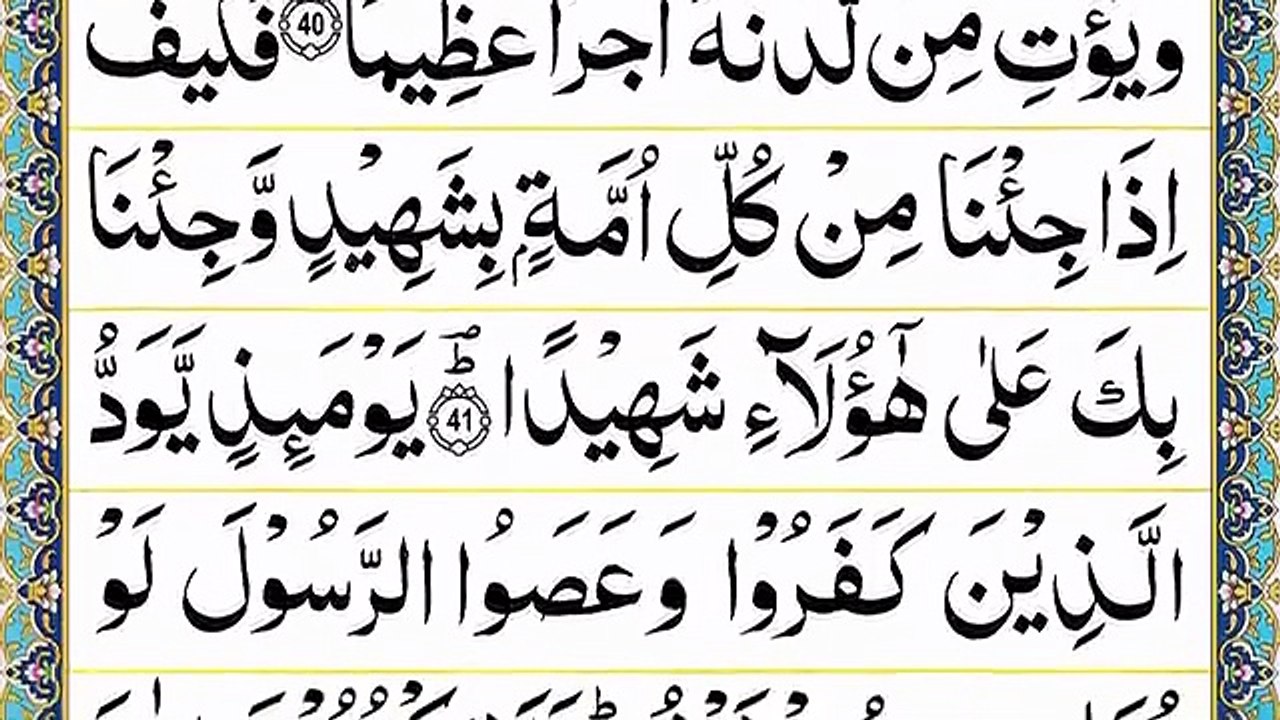 وَيُؤْتِ مِن لَّدُنْهُ اَجْرًا عَظِيْمًا 40 فَكَيْفَ
اِذَا جِئْنَا مِنْ كُلِّ اُمَّةٍۭ بِشَهِيْدٍ وَّجِئْنَا
بِكَ عَلٰى هٰٓؤُلَآءِ شَهِيْدًا ؕ 41 يَوْمَئِذٍ يَّوَدُّ
الَّذِيْنَ كَفَرُوْا وَعَصَوُا الرَّسُوْلَ لَوْ